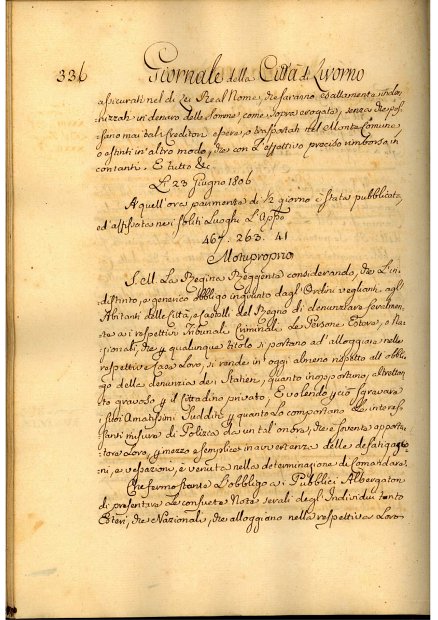 336 Giornale della Città di Livorno
assicurati nel di Lei Real Nome, che saranno esattamente inden
nizzati in denaro delle somme, come sopra erogate, senza che pos
sano mai tali Creditori essere, o trasportati nel Monte Comune,
o estinti in altro modo, che con l'effettivo preciso rimborso in
contanti. E tutto &c
Li 23 Giugno 1806
A quell'ora parimente di ½ giorno è stata pubblicata,
ed affissata nei soliti Luoghi L'App.
467. 263. 41
Motuproprio
S. M. La Regina Reggente considerando, che L'in
distinto, e generico obbligo ingiunto dagli Ordini veglianti agli
Abitanti delle Città, e Castelli del Regno di denunziare
ai respettivi Tribunali Criminale Le Persone Estere, o Na
zionali, che p qualunque titolo si portano ad alloggiare nelle
respettive Case Loro, si rende in oggi almeno rispetto all'obbli
go della denunzia dei Statieri, quanto inopportuno, altrettan
to gravoso p il Cittadino privato, E volendo p ciò sgravare
i suoi Amatissimi Sudditi p quanto Lo comportano Le interes
santi misure di Polizia da un tal' onere, che è sovente apporta
tore Loro, p mezzo e semplice inavvertenza delle
ni, e vessazioni, è venuta nella determinazione di Comandare
Che fermo stante L'obbligo ai Pubblici Albergatori
di presentare Le consuete Note serali degl'Individui tanto
Esteri, che Nazionali, che alloggiano nelle respettive Loro